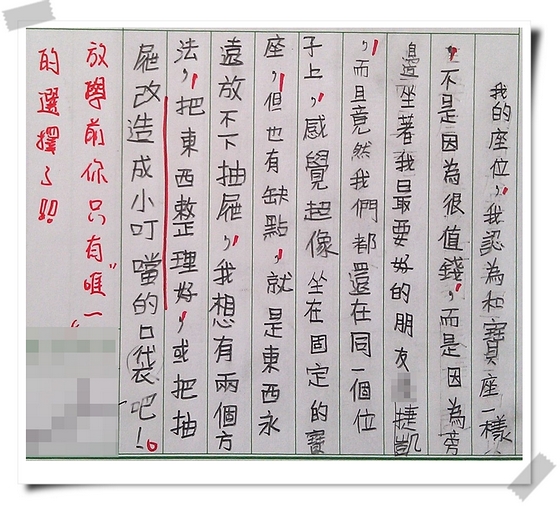 我的座位，我認為和寶座一樣
，不是因為很值錢，而是因為旁
邊坐著我最要好的朋友捷凱
，而且竟然我們都還在同一個位
子上，感覺超像坐在固定的寶
座，但也有缺點，就是東西永
遠放不下抽屜，我想有兩個方
法，把東西整理好，或把抽
屜改造成小叮噹的口袋吧！。
放學前你只有“唯一”
的選擇了!!